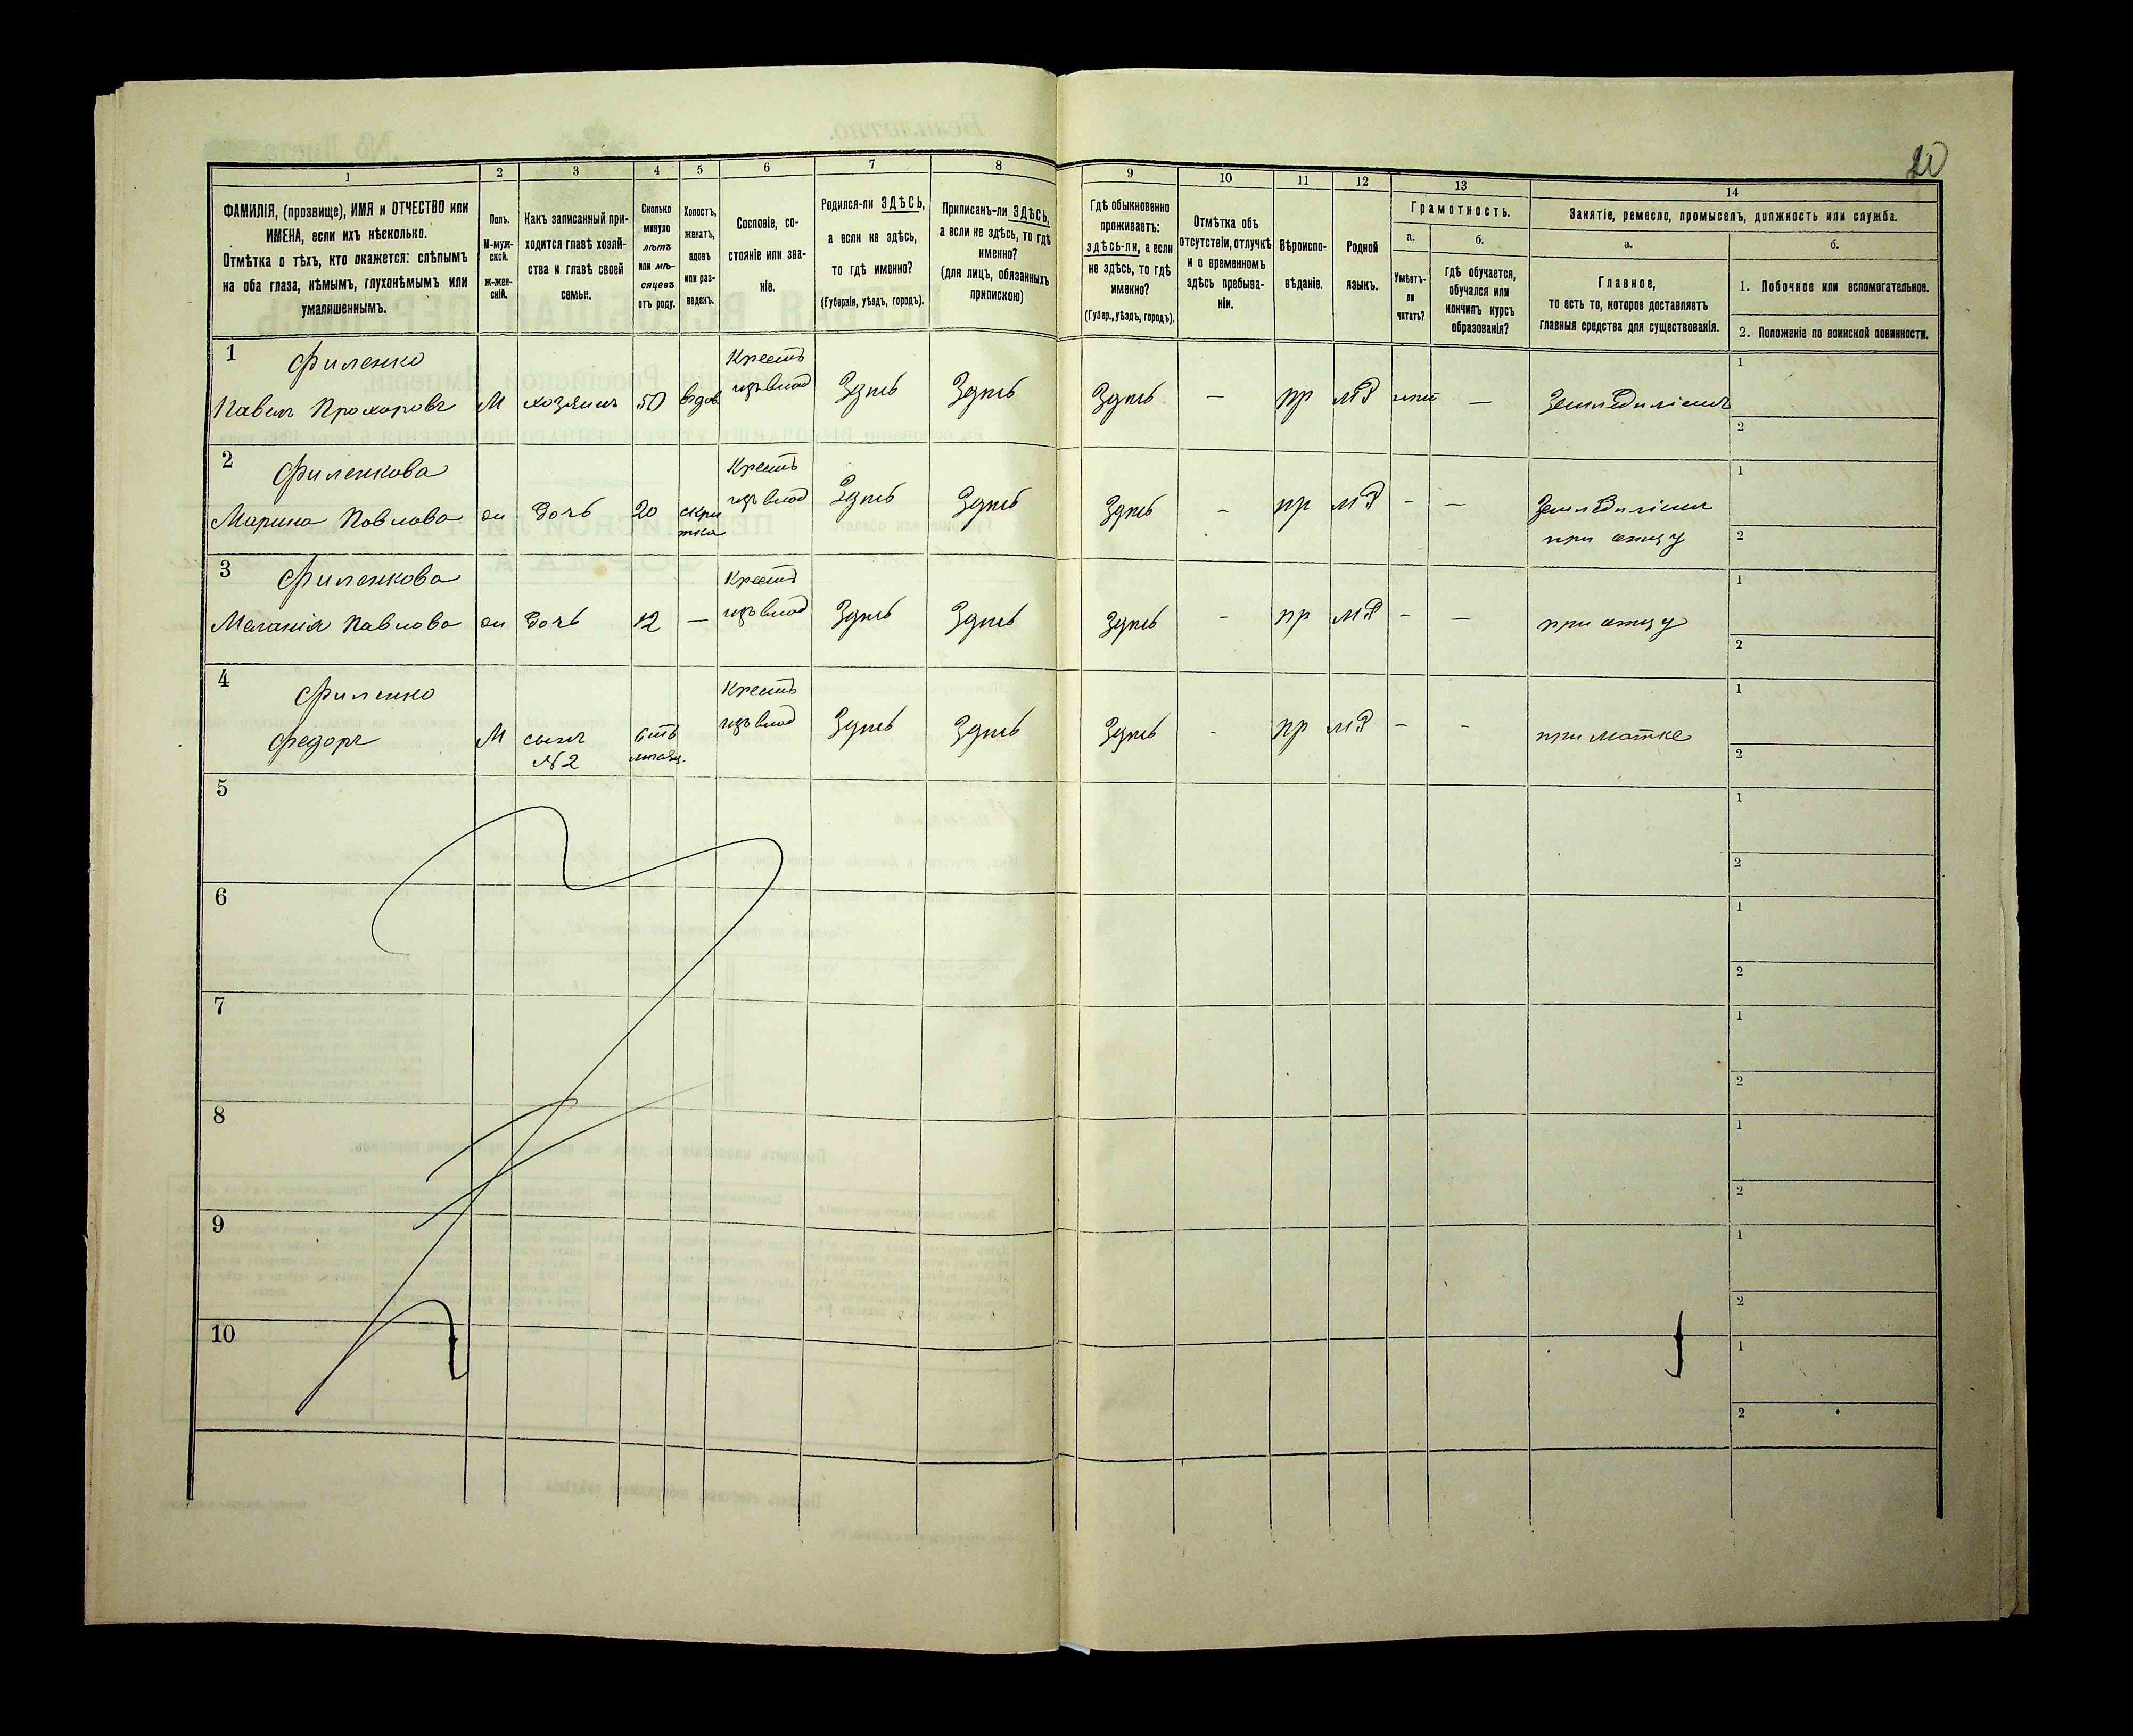 20
1
2
3
4
5
6
7
8
9
10
11
12
13
14
ФАМИЛІЯ, (прозвище), ИМЯ и ОТЧЕСТВО или
ИМЕНА, если ихъ нѣсколько.
Отмѣтка о тѣхъ, кто окажется: слѣпымъ
на оба глаза, нѣмымъ, глухонѣмымъ или
умалишеннымъ.
Полъ.
М-муж-
ской.
ж-жен-
скій.
Какъ записанный при-
ходится главѣ хозяй-
ства и главѣ своей
семьи.
Сколько
минуло
лѣтъ
или мѣ-
сяцевъ
отъ роду.
Холостъ,
женатъ,
вдовъ
или раз-
веденъ.
Сословіе, со-
стояніе или зва-
ніе.
Родился-ли ЗДѢСЬ,
а если не здѣсь,
то гдѣ именно?
(Губернія, уѣздъ, городъ).
Приписанъ-ли ЗДѢСЬ,
а если не здѣсь, то гдѣ
именно?
(для лицъ, обязанныхъ
припискою)
Гдѣ обыкновенно
проживаетъ:
здѣсь-ли, а если
не здѣсь, то гдѣ
именно?
(Губер., уѣздъ, городъ).
Отмѣтка объ
отсутствіи, отлучкѣ
и о временномъ
здѣсь пребыва-
ніи.
Вѣроиспо-
вѣданіе.
Родной
языкъ.
Грамотность.
а.
Умѣетъ-
ли
читать?
б.
гдѣ обучается,
обучался или
кончилъ курсъ
образованія?
Занятіе, ремесло, промыселъ, должность или служба.
а.
Главное,
то есть то, которое доставляетъ
главныя средства для существованія.
б.
1. Побочное или вспомогательное.
2. Положеніе по воинской повинности.
1 Филенко Крест
Павелъ Прохоровъ М хозяинъ 50 вдов Здѣсь Здѣсь Здѣсь — пр мР — Земледѣліемъ
1
2
2 Филенкова Крест
Марина Павлова дочь 20 Здѣсь Здѣсь Здѣсь - пр мР - — Земледѣліем
при отцу
1
2
3 Филенкова Крест
Меланія Павлова дочь 12 — Здѣсь Здѣсь Здѣсь - пр мР - — при отцу
1
2
4 Филенко Крест
Федоръ М сынъ Здѣсь Здѣсь Здѣсь - пр мР - - при матке
№2
1
2
5
1
2
6
1
2
7
1
2
8
1
2
9
1
2
10
1
2